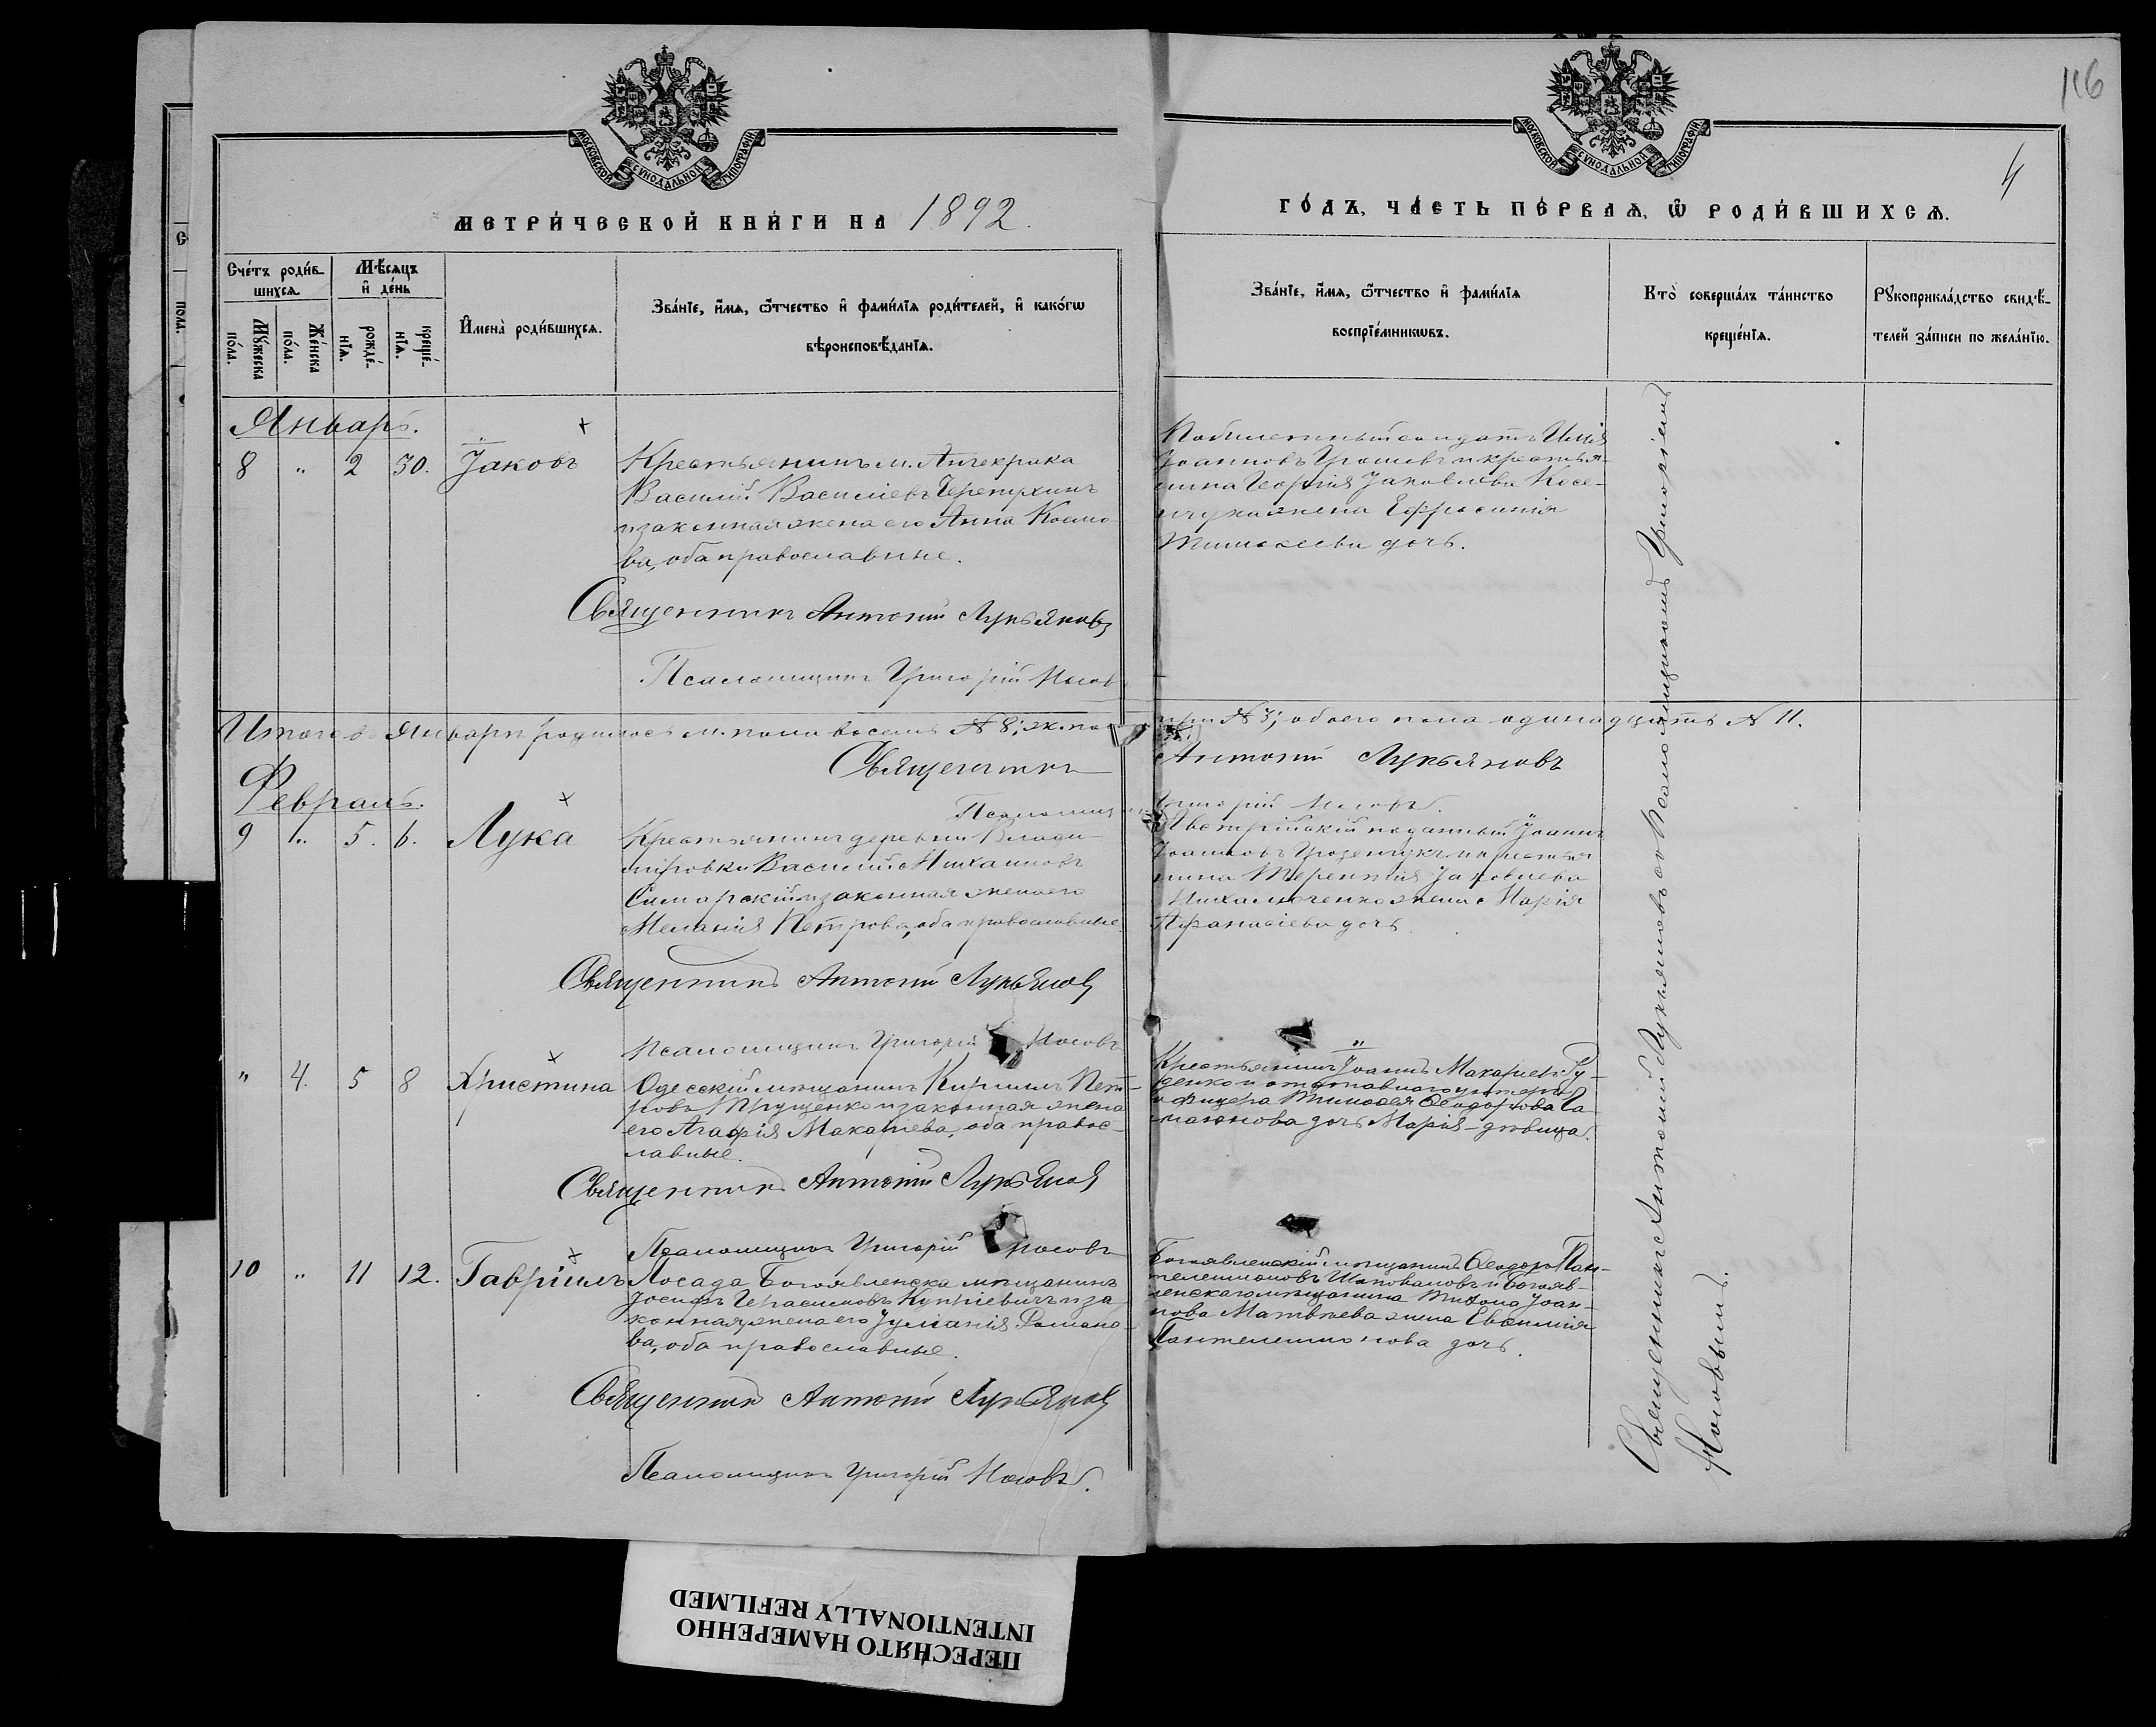 116
4
МОСКОВСКОЙ СѴНОДАЛЬНОЙ ТИПОГРАФІИ
МОСКОВСКОЙ СѴНОДАЛЬНОЙ ТИПОГРАФІИ
МЕТРИ́ЧЕСКОЙ КНИ́ГИ НА 1892.
ГО́ДЪ, ЧА́СТЬ ПЕ́РВАѦ, Ѡ РОДИ́ВШИХСѦ.
Сче́тъ роди́в-
шихсѧ.
Мꙋ́жеска по́ла.
Же́нска по́ла.
Мѣ́сѧцъ и де́нь
рожде́-нїѧ.
креще́-нїѧ.
Имена̀ роди́вшихсѧ.
Зва́нїе, и́мѧ, ѻ́тчество и фами́лїѧ роди́телей, и како́гѡ
вѣроисповѣ́данїѧ.
Зва́нїе, и́мѧ, ѻ́тчество и фами́лїѧ
воспрїе́мникѡвъ.
Кто̀ соверша́лъ та́инство
креще́нїѧ.
Рꙋкоприкла́дство свидѣ́-
телей за́писи по жела́нїю.
Январь.
8 " 2 30. Іаковъ
Крестьянинъ м. Анчекрака
Василій Василіевъ
и законная жена его Анна Космо-
ва, оба православные.
Священникъ Антоній Лукьяновъ
Псаломщикъ Григорій Носовъ
солдатъ Илія
Іоанновъ и крестья-
нина Георгія Іаковлева
жена Евфросинія
дочь.
Итого въ Январѣ родилось м. пола восемь № 8; ж. пола три № 3; обоего пола одинадцать № 11.
Священникъ Антоній Лукьяновъ
Псаломщикъ Григорій Носовъ.
Февраль.
9 " 5. 6. Лука
Крестьянинъ деревни Влади-
міровки Василій Михаиловъ
Самарскій и законная жена его
Меланія Петрова, оба православные.
Священникъ Антоній Лукьяновъ
Псаломщикъ Григорій Носовъ
Австрійскій подданный Іоаннъ
Іоанновъ и крестья-
нина Терентія Іаковлева
Михалюченко жена Марія
Афанасіева дочь.
" 4. 5 8 Христина
Одесскій мѣщанинъ Кириллъ Пет-
ровъ Трущенко и законная жена
его Агафія Макаріева, оба правос-
лавные.
Священникъ Антоній Лукьяновъ
Псаломщикъ Григорій Носовъ
Крестьянинъ Іоаннъ Макаріевъ Гу-
денко и отставного унтеръ-
офицера Тимофея Ѳеодорова
дочь Марія - дѣвица.
10 " 11 12. Гавріилъ
Посада Богоявленска мѣщанинъ
Іосифъ Герасимовъ Купріевичъ и за-
конная жена его Іуліанія Романо-
ва, оба православные.
Священникъ Антоній Лукьяновъ
Псаломщикъ Григорій Носовъ.
Богоявленскій мѣщанинъ Ѳеодоръ Пан-
телеимоновъ Шаповаловъ и Богояв-
ленскаго мѣщанина Тихона Іоан-
нова Матвѣева жена Евфимія
Пантелеимонова дочь.
Священникъ Антоній Лукьяновъ со Псаломщикомъ Григоріемъ
Носовымъ.
ПЕРЕСНЯТО НАМЕРЕННО
INTENTIONALLY REFILMED